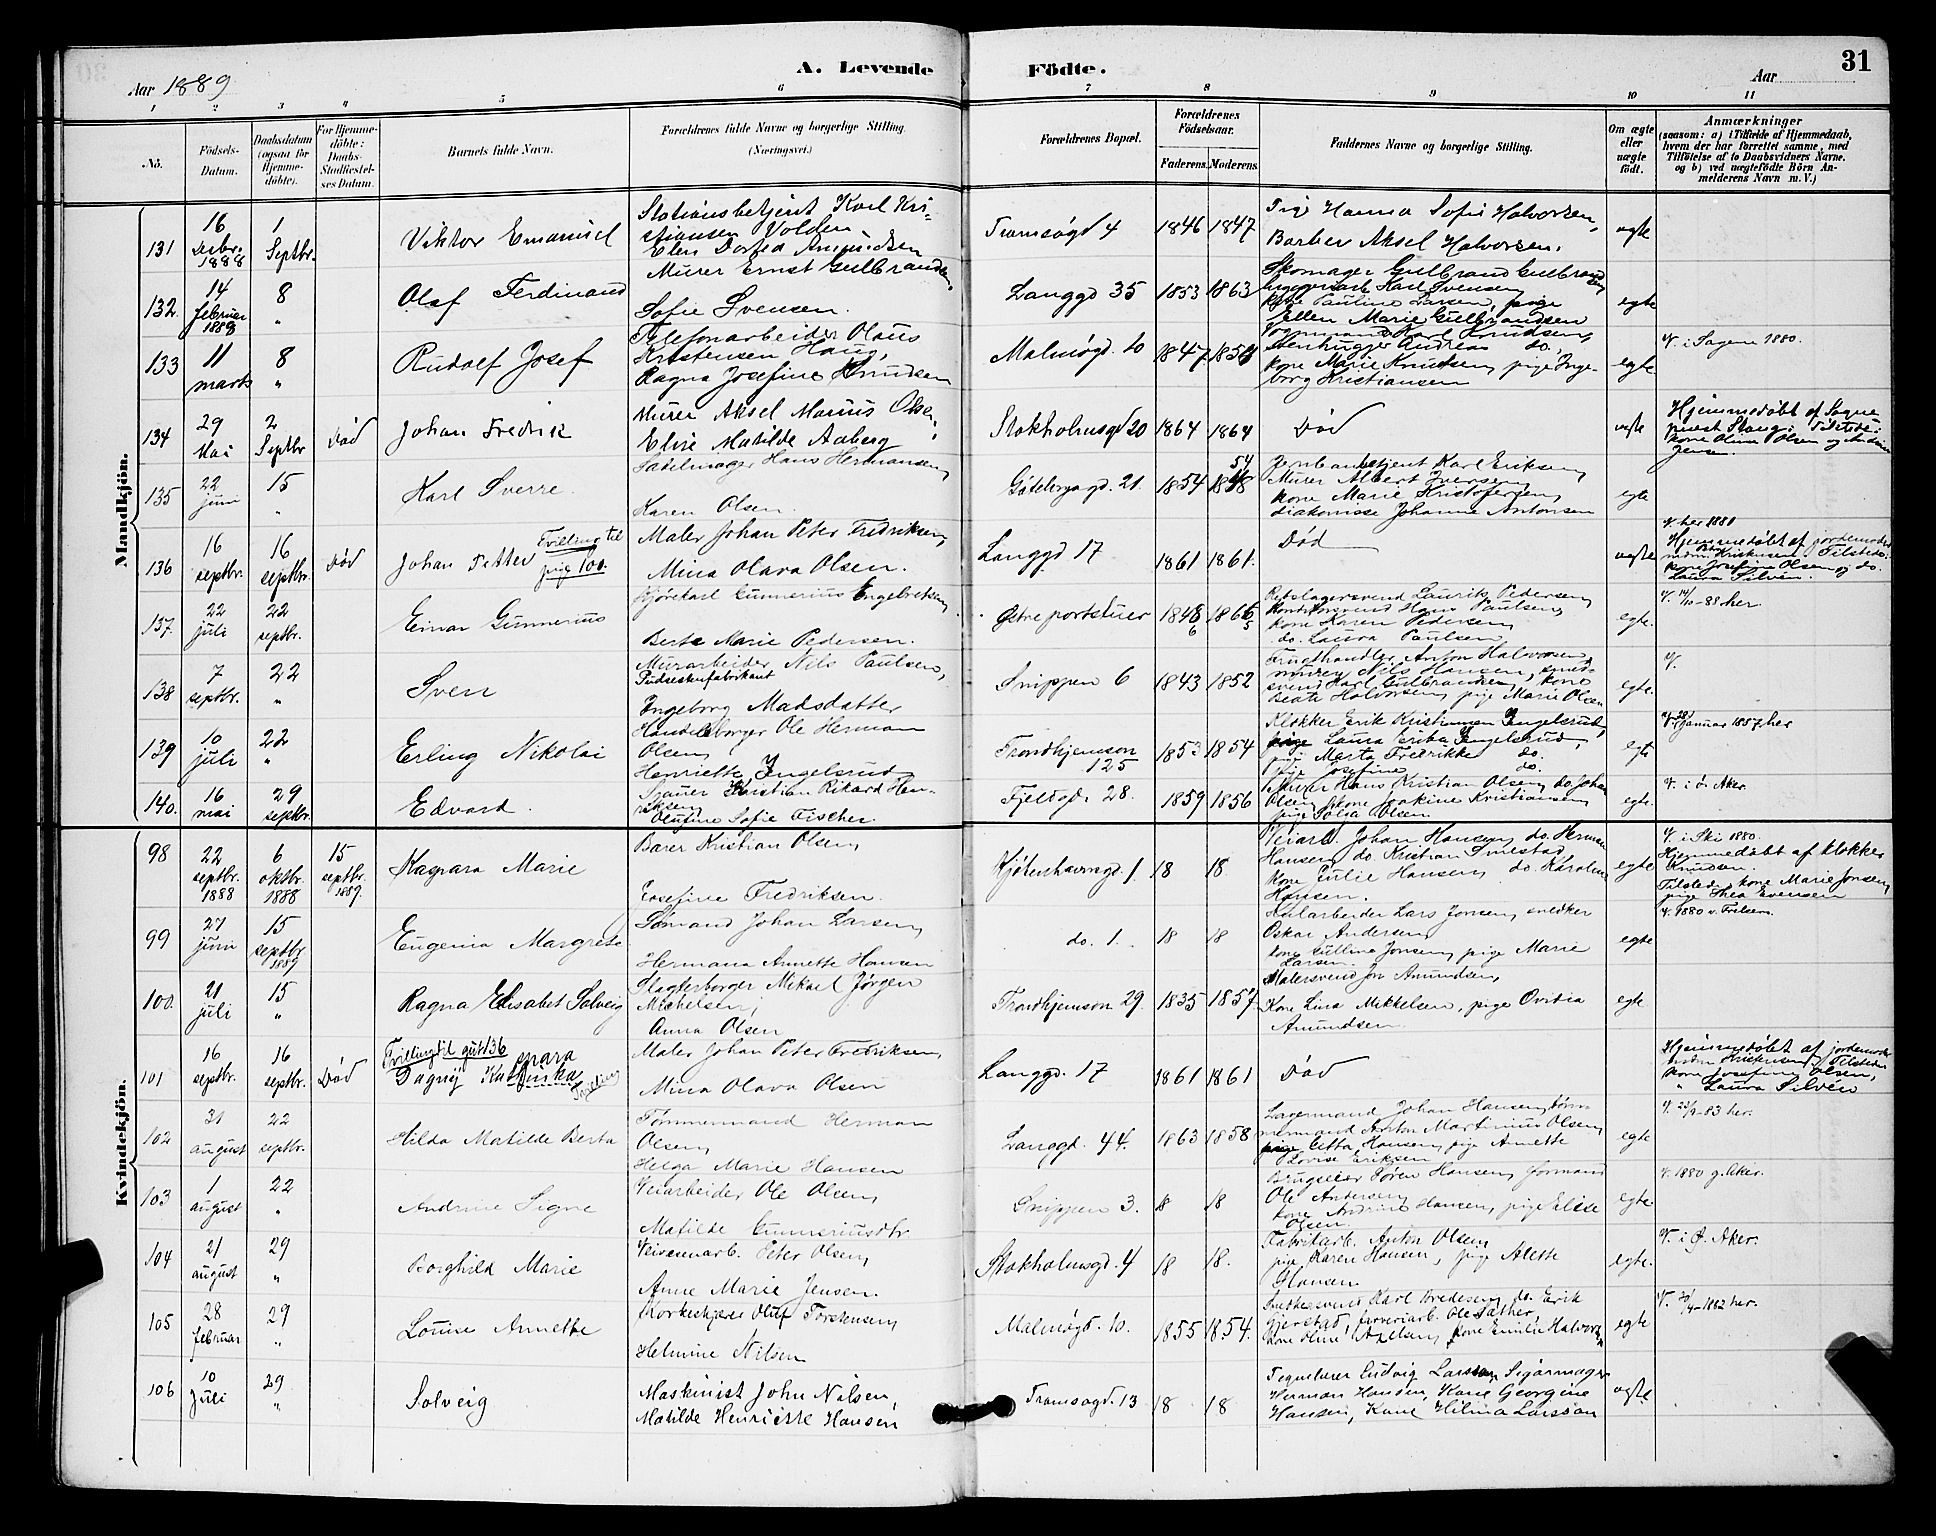 Aar 1889
A. Levende Födte.
Aar
31
1 2 3 4 5 6 7 8 9 10 11
No.
Födsels-Datum.
Daabsdatum (ogsaa for Hjemme-döbte).
For Hjemme-döbte: Daabs-Stadfæstel-ses Datum.
Barnets fulde Navn.
Forældrenes fulde Navne og borgerlige Stilling. (Næringsvei.)
Forældrenes Bopæl.
Forældrenes Födselsaar.
Faderens. Moderens.
Faddernes Navne og borgerlige Stilling.
Om ægte eller uægte födt.
Anmærkninger
(saasom: a) i Tilfælde af Hjemmedaab, hvem der har forrettet samme, med Tilföielse af to Daabsvidners Navne. og b) ved uægtefödte Börn An-melderens Navn m. V.)
Mandkjön.
131 16 Decbr. 1888 1 Septbr. Viktor Emanuel Stationsbetjent Karl Kristiansen Volden Elen Dortea Amundsen Tromsøgd 4 1846 1847 Pige Hanna Sofie Halvorsen, Barber Aksel Halvorsen. ægte
132. 14 februar 1889 8 " Olaf Ferdinand Murer Ernst Gulbrandsen, Sofie Svensen. Langgd 35 1853 1863 Skomager Gulbrand Gulbrandsen, Karl Svensen, kone Pauline Larsen, pige Ellen Marie Gulbrandsen egte
133 11 marts 8 " Rudolf Josef Telefonarbeider Olaus Kristensen Haug, Ragna Josefine Knudsen Malmøgd. 10 1847 Karl Knudsen, Stenhugger Andreas do., kone Marie Knudsen, pige Ingeborg Kristiansen egte V. i Sagene 1880.
134 29 Mai 2 Septbr Död Johan Fredrik Murer Aksel Marius Olsen, Elise Matilde Aaberg Stokholmsgd 20 1864 1864 Död ægte Hjemmedöbt af Sognepræst Stang; Tilstede: kone Olina Olsen og
135 22 juni 15 " Karl Sverre. Sadelmager Hans Hermansen, Karen Olsen. Göteborggd. 21. 1854 54 Jernbanebetjent Karl Eriksen, Murer Albert Iversen, kone Marie Kristofersen, diakonisse Johanne Antonsen egte
136 16 septbr. 16 septbr. Död Johan Petter Tvilling til pige 100. Maler Johan Peter Fredriksen, Mina Olava Olsen. Langgd 17 1861 1861. Död ægte V. her 1881 Hjemmedöbt af jordemoder Kristensen, Tilstede: kone Josefine Olsen og do. Laura Silvén.
137. 22 juli 22 septbr. Einar Gunnerius Kjørekarl Gunnerius Engebretsen, Berte Marie Pedersen. Østre portstuer 1848 6 186 5 Rebslagersvend Laurits Pedersen, Hans Paulsen, kone Karen Pedersen, do. Laura Paulsen egte. V. 14/10-88 her.
138. 7 septbr. 22 " Sven Murarbeider Nils Paulsen, Pudreskefabrikant Ingeborg Madsdatter Snippen 6 1843 1852 Frugthandler Anton Halvorsen, murer Nils Hansen, svend Karl Gulbrandsen, kone Beate Halvorsen, pige Marie Olsen egte. V.
139 10 juli 22 " Erling Nikolai Handelsborger Ole Herman Olsen, Henriette Ingelsrud Trondhjemsvn 125 1853 1854 Klokker Erik Kristiansen Ingelsrud, Laura Erika Ingelsrud, pige Marta Fredrikke do. pige Josefine do. egte V. januar 1857 her
140. 16 mai 29 septbr. Edvard. Kristian Rikard Henriksen, Olufine Sofie Fischer. Fjeldgd. 28. 1859 1856 Murer Hans Kristian Olsen, do. Johan Olsen, kone Joakine Kristiansen, pige Olsen egte. V. i ø. Aker.
Kvindekjön.
98 22 septbr. 1888 6 oktbr. 1888 15 septbr. 1889. Kaspara Marie Bører Kristian Olsen, Josefine Fredriksen. Kjøbenhavnsgd. 1 18 18 Veiarb. Johan Hansen, do. Herman Hansen, do. Kristian Smestad, kone Julie Hansen, do. Karoline Hansen. egte V. i Ski 1880. Hjemmedöbt af klokker Knudsen. Tilstede: kone Marie Jonsen, pige Thea Evensen
99 27 juni 15 septbr. 1889 Eugenia Margrete Sømand Johan Larsen, Hermana Annette Hansen do. 1. 18 18 Kularbeider Lars Jonsen, snedker Oskar Andersen, kone Gulline Jonsen, pige Marie Larsen. egte V. 1880 v. Frelsern.
100. 21 juli 15 " Ragna Elisabet Solveig Slagterborger Mikael Jørgen Michelsen, Anna Olsen Trondhjemsvn 29. 1835 1857 Malersvend Jon Amundsen, Kone Lina Mikkelsen, pige Ovidia Amundsen. egte
101 16 septbr. 16 septbr. Död Tvilling til gut 136 Dagny Kaspara Maler Johan Peter Fredriksen, Mina Olava Olsen Langgd. 17 1861 1861 Död Hjemmedöbt af jordemoder Kristensen, Tilstede: kone Josefine Olsen, " Laura Silvén
102 31 august 22 septbr. Hilda Matilde Berta Tømmermand Herman Olsen, Helga Marie Hansen Langgd. 44. 1863 1858 Lagermand Johan Hansen, tømmermand Anton Martinius Olsen, Hansen, pige Annette Lovise Eriksen egte V. 23/9-83 her.
103 1 august 22 " Andrine Signe Veiarbeider Ole Olsen, Matilde Gunneriusdtr. Snippen 3. 18 18 Søren Hansen, formand Ole Andersen, kone Andrine Hansen, pige Elise Olsen. egte V. 1880 g. Aker.
104 21 august 29 " Borghild Marie Veivæsenarb. Peter Olsen, Anne Marie Jensen. Stokholmsgd. 4 18 18. Fabrikarb. Anton Olsen, pige Karen Hansen, pige Alette Hansen egte. V. i Ø. Aker.
105 28 februar 29 " Louise Annette Korkeskjærer Oluf Torstensen, Helmine Nilsen Malmøgd. 10. 1855 1854. Snedkersvend Karl Bredesen, do. Erik Gjerstad, farveriarb. Ole Sæther, kone Oline, kone Emilie Halvorsen egte V. 30/4-1882 her.
106 10 Juli 29 " Solveig Maskinist John Nilsen, Matilde Henriette Hansen Tromsøgd. 13 18 18 Ludvig Larsson, Sigarmager Herman Hansen, Kone Georgine Hansen, Kone Hilma Larsson ægte.